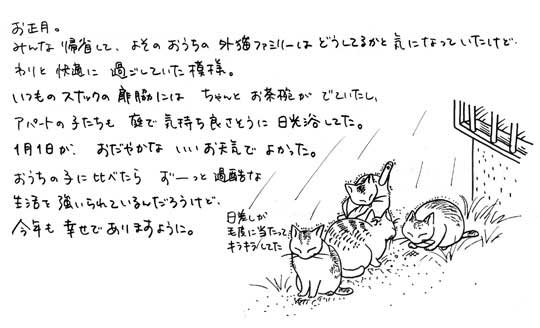 お正月。
みんな帰省して、よそのおうちの外猫ファミリーはどうしてるかと気になっていたけど、
わりと快適に過ごしていた模様。
いつものスナックの扉脇にはちゃんとお茶碗がでていたし、
アパートの子たちも庭で気持ち良さそうに日光浴してた。
1月1日が、おだやかないいお天気でよかった。
おうちの子に比べたらずーっと過酷な
生活を強いられているんだろうけど、
今年も幸せでありますように。
日差しが
毛皮に当たって
キラキラしてた